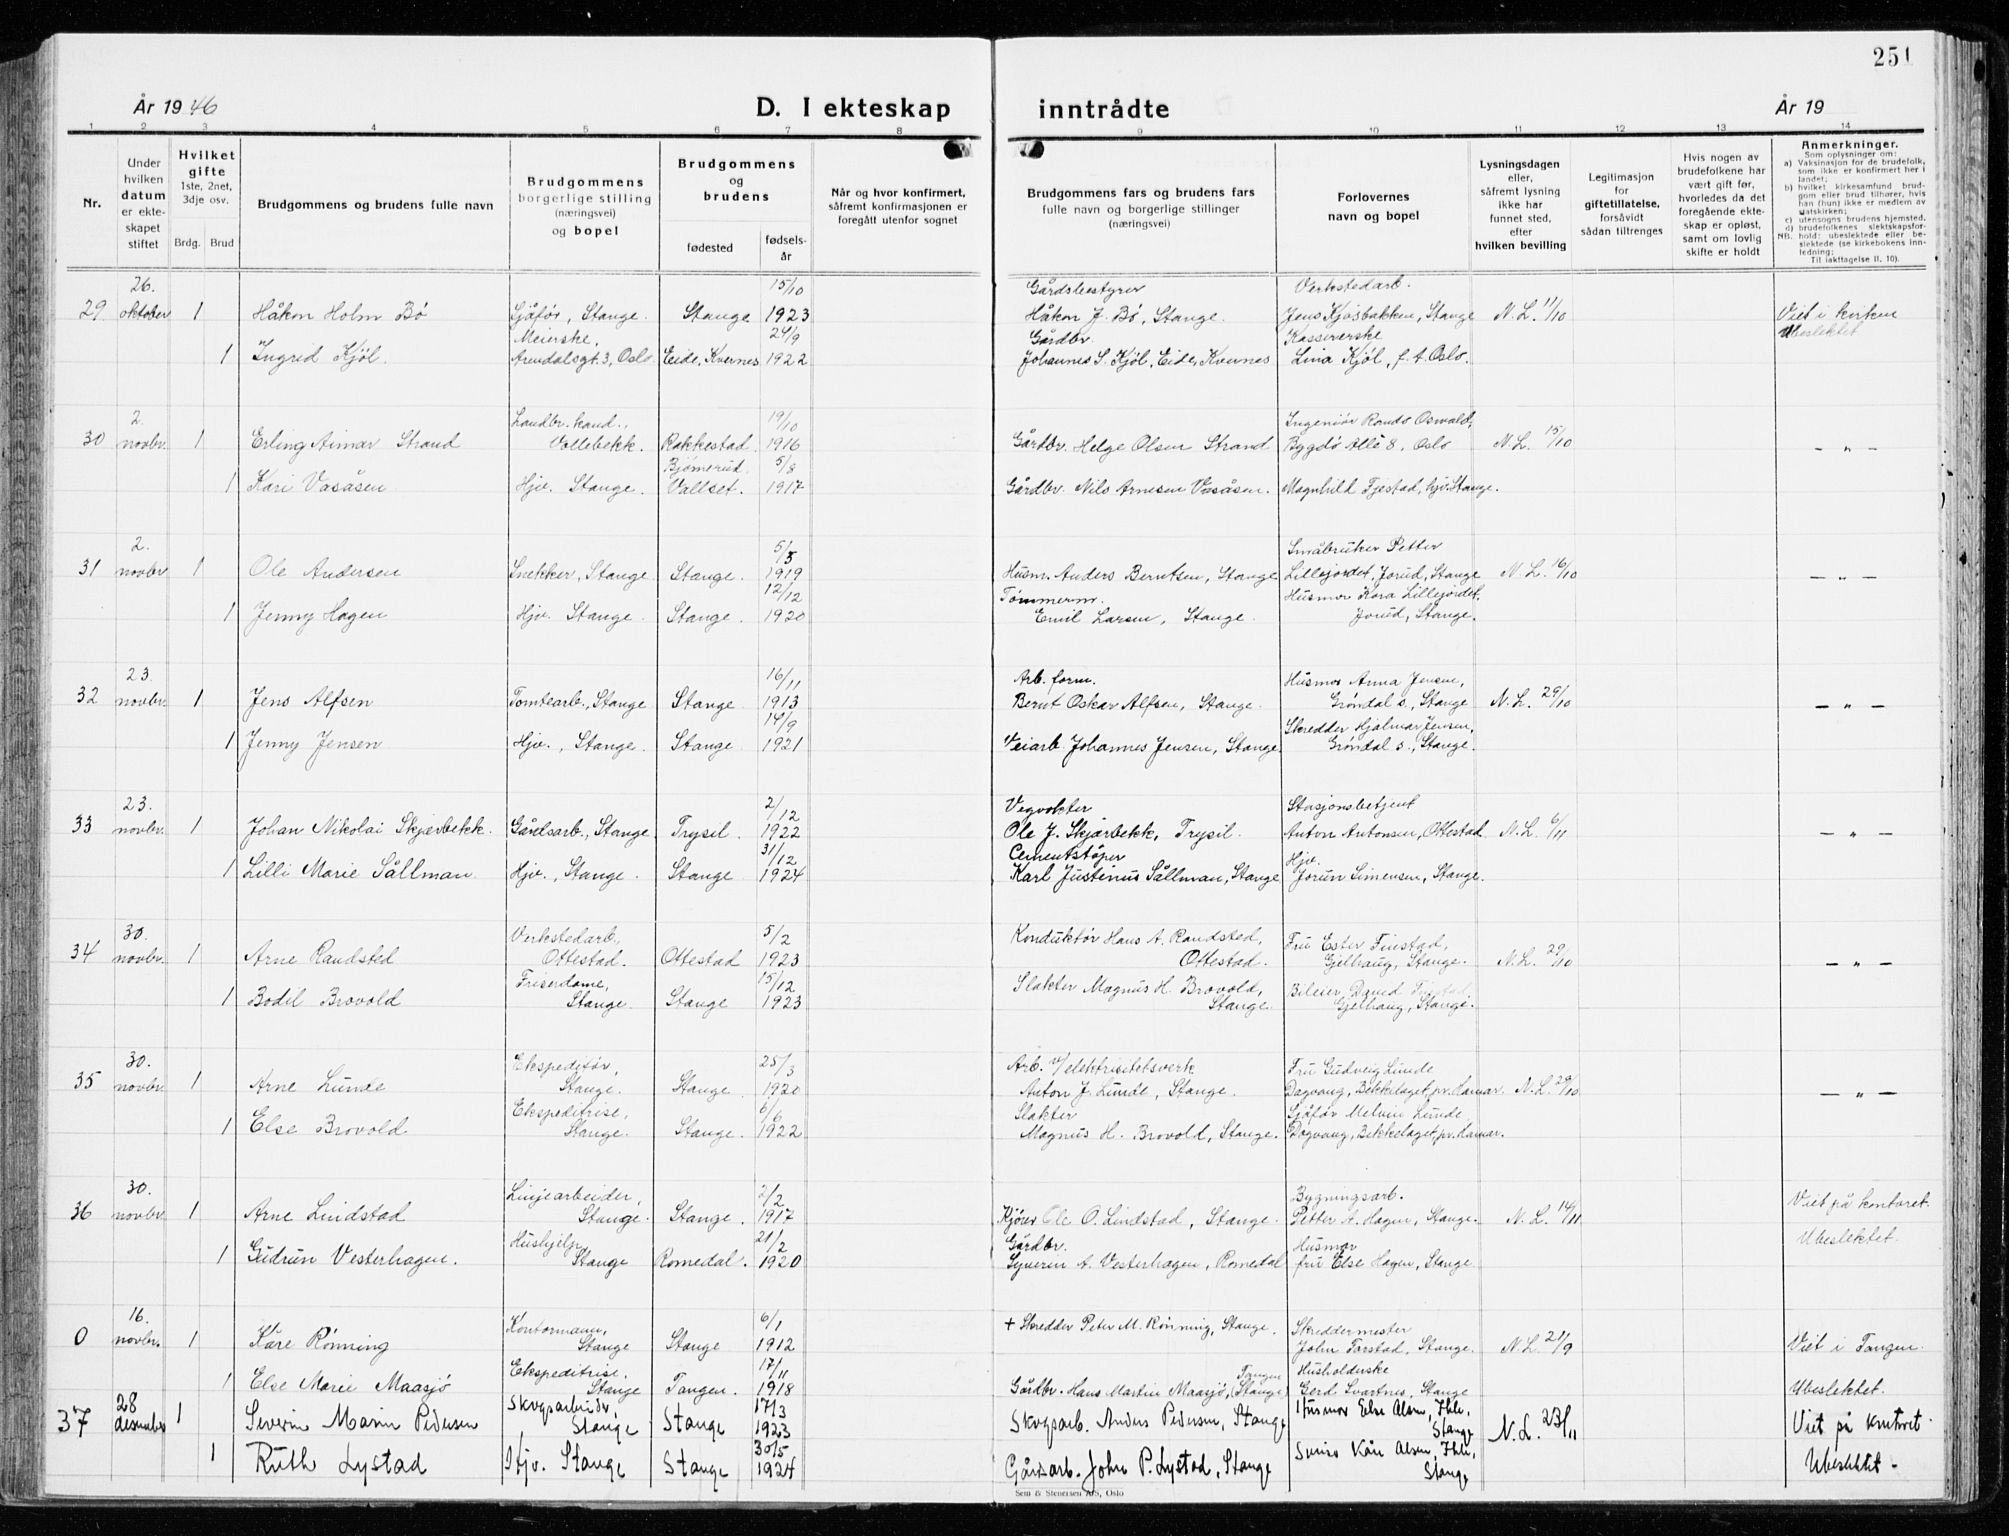 251
År 1946
D. I ekteskap inntrådte
År 19
1 2 3 4 5 6 7 8 9 10 11 12 13 14
Nr.
Under hvilken datum er ekteskapet stiftet
Hvilket gifte 1ste, 2net, 3dje osv.
Brdg. Brud
Brudgommens og brudens fulle navn
Brudgommens borgerlige stilling (næringsvei) og bopel
Brudgommens og brudens
fødested
fødselsår
Når og hvor konfirmert, såfremt konfirmasjonen er foregått utenfor sognet
Brudgommens fars og brudens fars fulle navn og borgerlige stillinger (næringsvei)
Forlovernes navn og bopel
Lysningsdagen eller, såfremt lysning ikke har funnet sted, efter hvilken bevilling
Legitimasjon for giftetillatelse, forsåvidt sådan tiltrenges
Hvis nogen av brudefolkene har vært gift før, hvorledes da det foregående ekteskap er opløst, samt om lovlig skifte er holdt
Anmerkninger.
Som oplysninger om:
a) Vaksinasjon for de brudefolk, som ikke er konfirmert her i landet;
b) hvilket kirkesamfund brudgom eller brud tilhører, hvis han (hun) ikke er medlem av statskirken;
c) utensogns brudens hjemsted.
d) brudefolkenes slektskapsforhold: ubeslektede eller beslektede (se kirkebokens innledning;
NB.
Til iakttagelse II, 10).
26. 15/10 Gårdsbestyrer Verkstedarb.
29 oktober 1 Håkon Holm Bö Sjåför, Stange. Stange 1923 Håkon J. Bö, Stange. Jens Kjösbakken, Stange N.L. 11/10 Viet i kirken
Meierske, 24/9 Gårdbr. Kassererske Ubeslektet
1 Ingrid Kjöl. Arendalsgt. 3, Oslo. Eide, Kvernes 1922 Johannes S. Kjöl, Eide, Kvernes Lina Kjöl, f. t. Oslo.
2. Landbr. kand., 19/10 Ingeniör Rands Oswald,
30 novbr. 1 Erling Aimar Strand Vollebekk. Rakkestad. 1916 Gårdbr. Helge Olsen Strand Bygdö Allè 8, Oslo N.L. 15/10 — " —
Bjömerud. 5/8
1 Kari Vasåsen Hjv. Stange. Vallset. 1917 Gårdbr. Nils Arnesen Vasåsen. Magnhild Fjestad, hjv. Stange.
2. 5/5 Småbruker Petter
31 novbr 1 Ole Andersen Snekker, Stange. Stange. 1919 Husm. Anders Berntsen, Stange Lillejordet, Jorud, Stange N.L. 16/10 — " —
12/12 Tömmerm. Husmor Kora Lillejordet,
1 Jenny Hagen Hjv. Stange. Stange. 1920 Emil Larsen, Stange. Jorud, Stange.
23. 16/11 Arb. form. Husmor Anna Jensen,
32 novbr. 1 Jens Alfsen Tomtearb., Stange Stange. 1913 Bernt Oskar Alfsen, Stange. Gröndal s., Stange N.L. 29/10 — " —
14/9 Skredder Hjalmar Jensen,
1 Jenny Jensen Hjv., Stange. Stange. 1921 Veiarb. Johannes Jensen, Stange Gröndal s., Stange.
23. 2/12 Vegvokter Stasjonsbetjent
33 novbr. 1 Johan Nikolai Skjærbekk. Gårdsarb., Stange Trysil. 1922 Ole J. Skjærbekk, Trysil. Anton Antonsen, Ottestad N.L. 6/11 — " —
31/12 Cementstöper Hjv.
1 Lilli Marie Sållman. Hjv., Stange. Stange. 1924 Karl Justinus Sållman, Stange Jorun Simensen, Stange.
30. Verkstedarb., 5/2 Konduktör Hans A. Randsted, Fru Ester Finstad,
34 novbr. 1 Arne Randsted Ottestad. Ottestad 1923 Ottestad. Gjelhaug, Stange. N.L. 29/10 — " —
Friserdame, 15/12 Slakter Magnus H. Brovold, Bileier David Finstad,
1 Bodil Brovold Stange. Stange 1923 Stange. Gjelhaug, Stange.
30. Ekspeditör, 25/3 Arb. v/elektrisitetsverk Fru Gudveig Lunde
35 novbr. 1 Arne Lunde Stange. Stange. 1920 Anton J. Lunde, Stange. Dagvang, Bekkelaget pr. Hamar. N.L. 29/10 — " —
Ekspeditrise, 6/6 Slakter Sjåför Melvin Lunde,
1 Else Brovold. Stange. Stange. 1922 Magnus H. Brovold, Stange. Dagvang, Bekkelaget, pr. Hamar.
30. Linjearbeider, 2/2 Bygningsarb. Viet på kontoret.
36 novbr. 1 Arne Lindstad Stange. Stange. 1917 Kjörer Ole O. Lindstad, Stange. Petter A. Hagen, Stange. N.L. 14/11
Hushjelp, 21/2 Gårdbr. Husmor Ubeslektet.
1 Gudrun Vesterhagen. Stange Romedal. 1920 Syverin A. Vesterhagen, Romedal fru Else Hagen, Stange
16. Kontormann, 6/1 + Skredder Peter M. Rönning, Stange. Skreddermester
0 novbr. 1 Kåre Rönning Stange Stange 1912 John Torstad, Stange. N.L. 21/9 Viet i Tangen.
Ekspeditrise. 17/11 Tangen Husholderske
1 Else Marie Maasjö Stange Tangen. 1918 Gårdbr. Hans Martin Maasjö, (Stange) Gerd Svartnes, Stange Ubeslektet.
28 Skogsarbeider, 17/3 Husmor Else Alsen, Ihle,
37 desember 1 Severin Marin Pedersen Stange Stange 1923 Skogsarb. Anders Pedersen, Stange Stange N.L. 23/11 Viet på kontoret.
30/5 Kåre Alsen, Ihle,
1 Ruth Lystad Hjv. Stange Stange 1924 Gårdsarb. John P. Lystad, Stange Stange Ubeslektet.
Sem & Stenersen A/S, Oslo